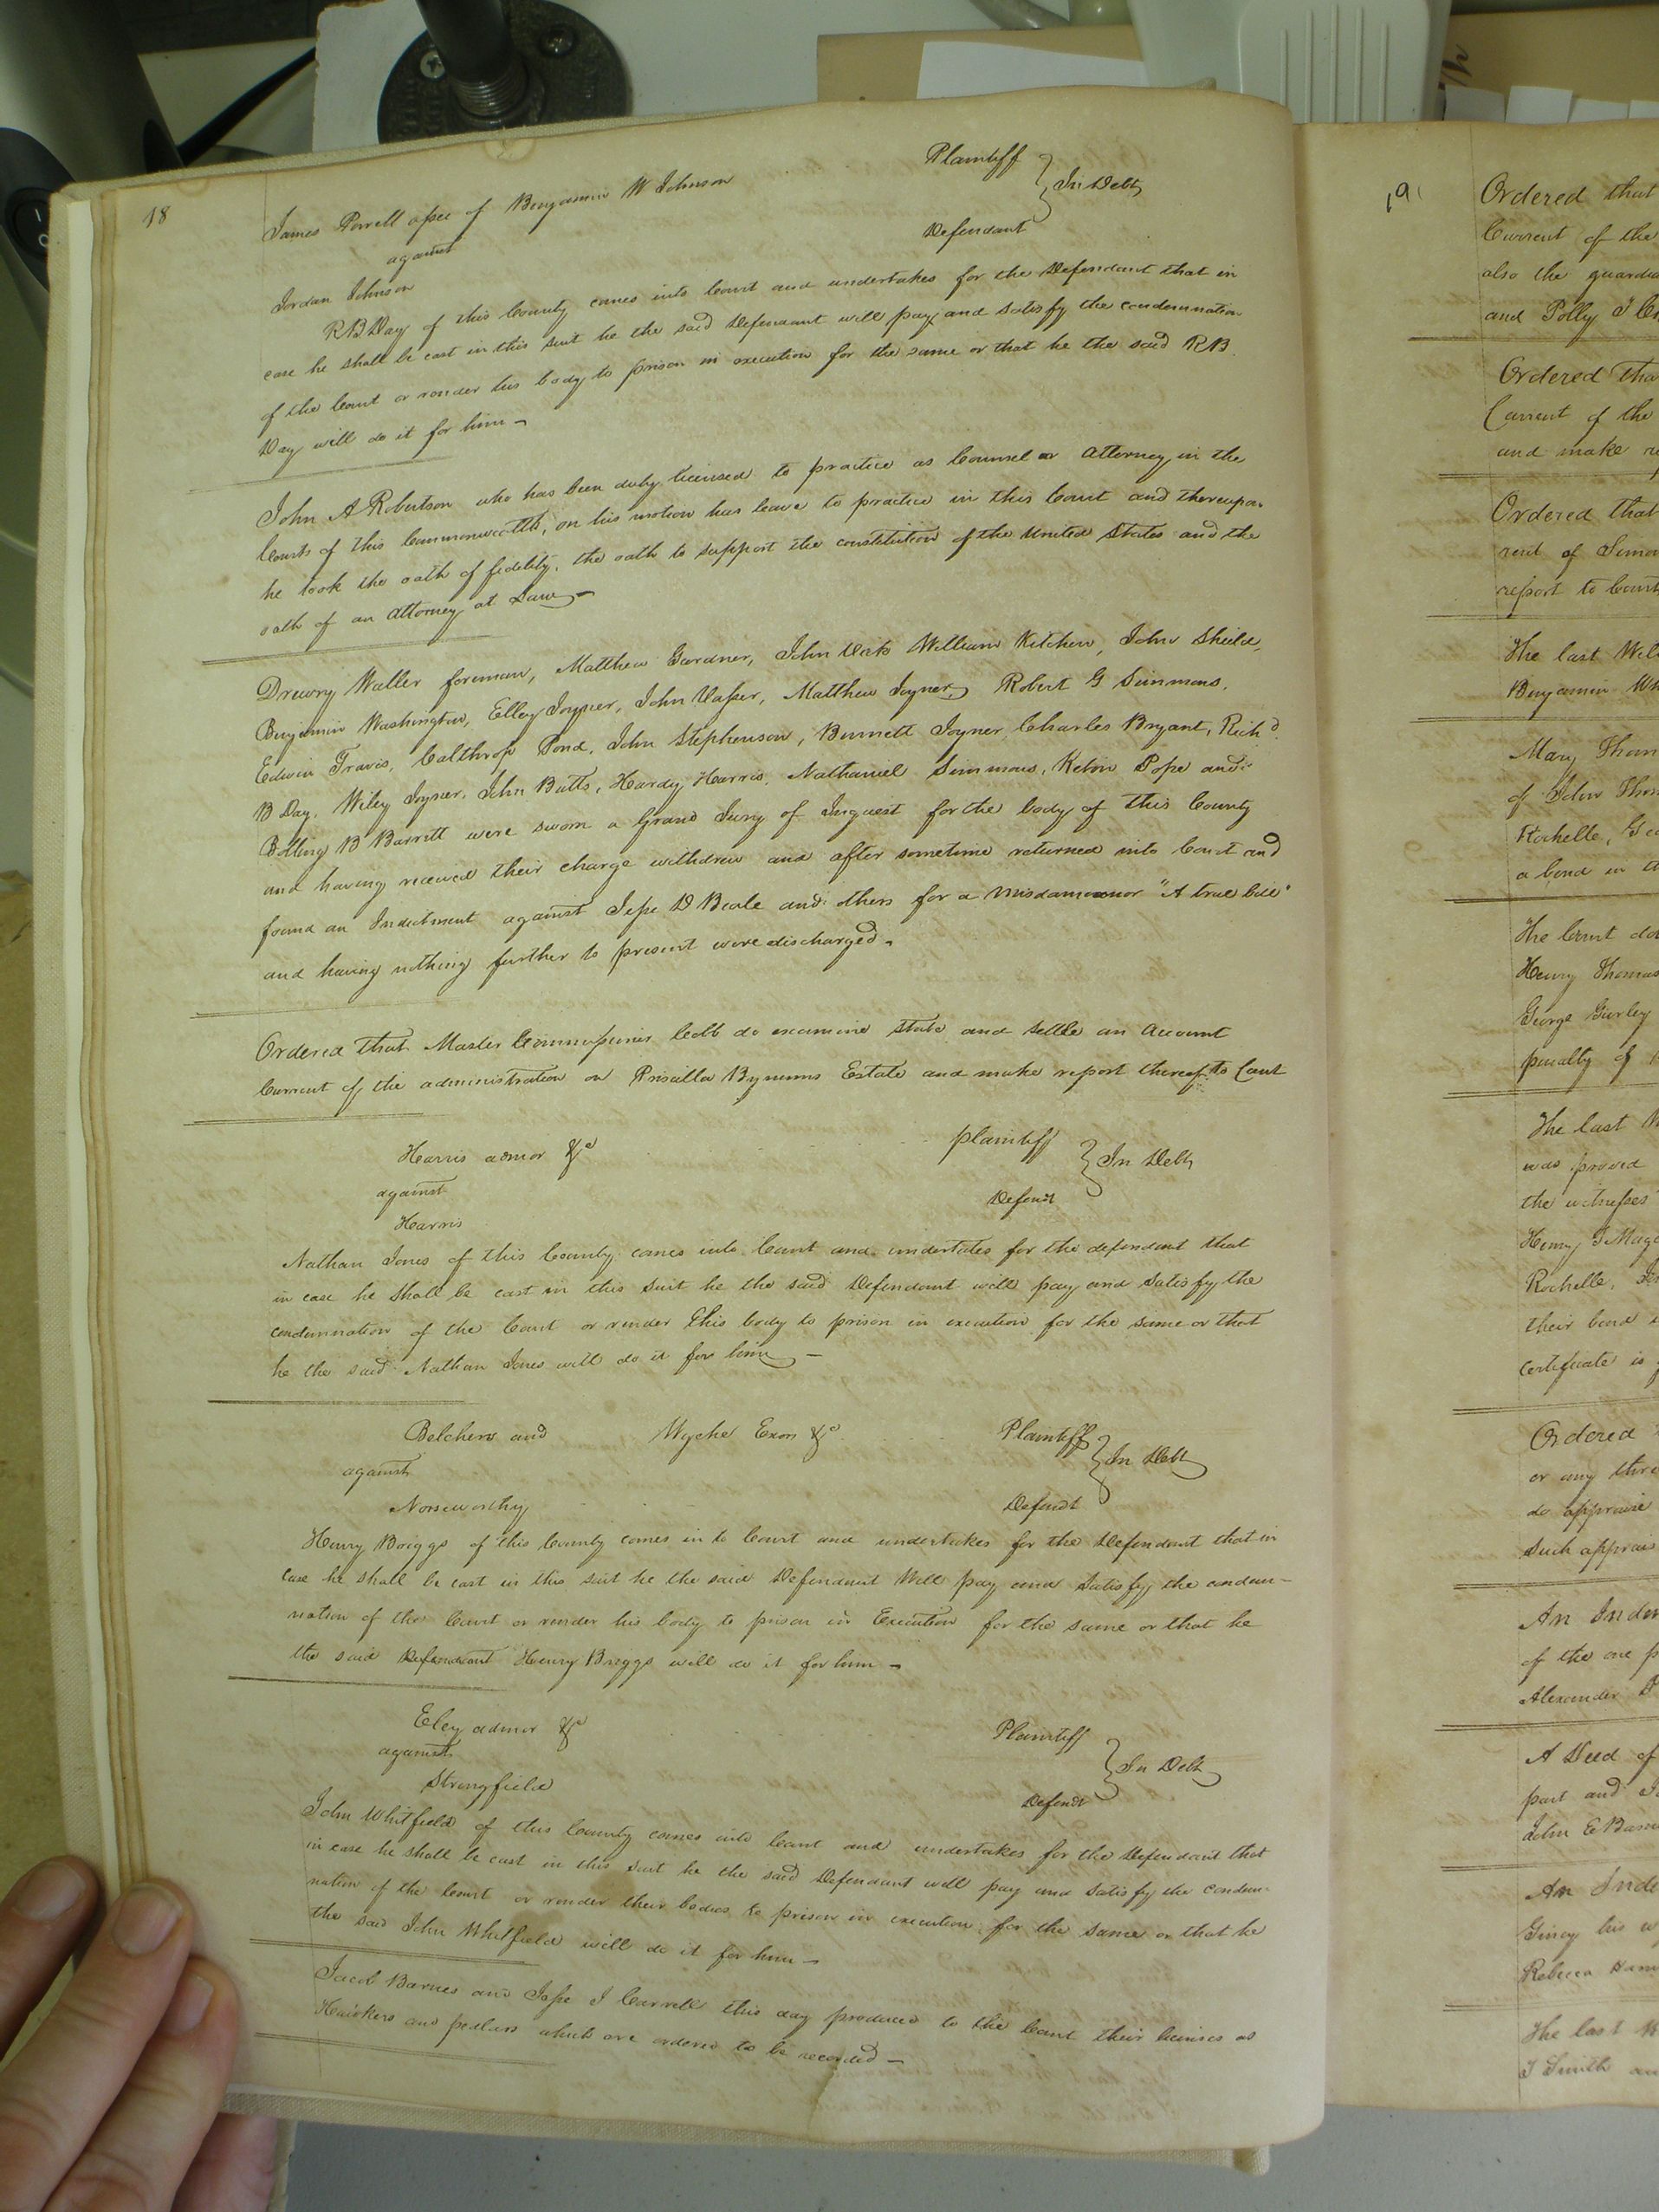 18
James Powell assee of Benjamin W Johnson Plaintiff
against } In Debt
Jordan Johnson Defendant
R B Day of this County comes into Court and undertakes for the Defendant that in
case he shall be cast in this suit he the said Defendant will pay and satisfy the condemnation
of the Court or render his body to prison in execution for the same or that he the said R B
Day will do it for him –
John A Robertson who has been duly licensed to practice as Counsel or Attorney in the
Courts of this Commonwealth, on his motion has leave to practice in this Court and thereupon
he took the oath of fidelity, the oath to support the constitution of the United States and the
oath of an Attorney at Law –
Drewry Waller foreman, Matthew Gardner, John William Kitchen, John Shield,
Benjamin Washington, Elley Joyner, John Vasser, Matthew Joyner, Robert G Simmons,
Edwin Travis, Calthrop Pond, John Stephenson, Burnett Joyner, Charles Bryant, Richd
B Day, Wiley Joyner, John Butts, Hardy Harris, Nathaniel Simmons, Kelvin Pope and
Bolling B Barrett were sworn a Grand Jury of Inquest for the body of this County
and having received their charge withdrew and after sometime returned into Court and
found an Indictment against Jesse D Beale and others for a misdameanor "A true bill"
and having nothing further to present were discharged.
Ordered that Master Commissioner Cobb do examine state and settle an Account
Current of the administration on Priscilla Bynums Estate and make report thereof to Court
Harris admor &c plaintiff
against } In Debt
Harris Defendt
Nathan Jones of this County comes into Court and undertakes for the defendant that
in case he shall be cast in this suit he the said Defendant will pay and satisfy the
condemnation of the Court or render his body to prison in execution for the same or that
he the said Nathan Jones will do it for him –
Belcher and Wyche Exors &c Plaintiffs
against } In Debt
Norseworthy Defendt
Henry Briggs of this County comes in to Court and undertakes for the Defendant that in
case he shall be cast in this suit he the said Defendant Will pay and satisfy the condem-
nation of the Court or render his body to prison in Execution for the same or that he
the said Defendant Henry Briggs will do it for him –
Eley admor &c Plaintiff
against } In Debt
Stringfield Defendt
John Whitfield of this County comes into Court and undertakes for the Defendant that
in case he shall be cast in this suit he the said Defendant will pay and satisfy the condem-
nation of the Court or render their bodies to prison in execution for the same or that he
the said John Whitfield will do it for him –
Jacob Barnes and Jesse J Carrell this day produced to the Court their licenses as
Hawkers and pedlars which are ordered to be recorded –
19
Ordered that
Current of the
also the
and Polly
Ordered
Current of the
and make
Ordered that
report to Court
The last
Benjamin
Mary
of John
Rochelle,
a bond in
The Court
Henry Thomas
George Gurley
penalty of
The last
was proved
the witnesses
Henry
Rochelle,
their bond
certificate is
Ordered
or any
do appraise
such
An
of the one
Alexander
A Deed of
part and
John E
An
his
Rebecca
The last
J Smith